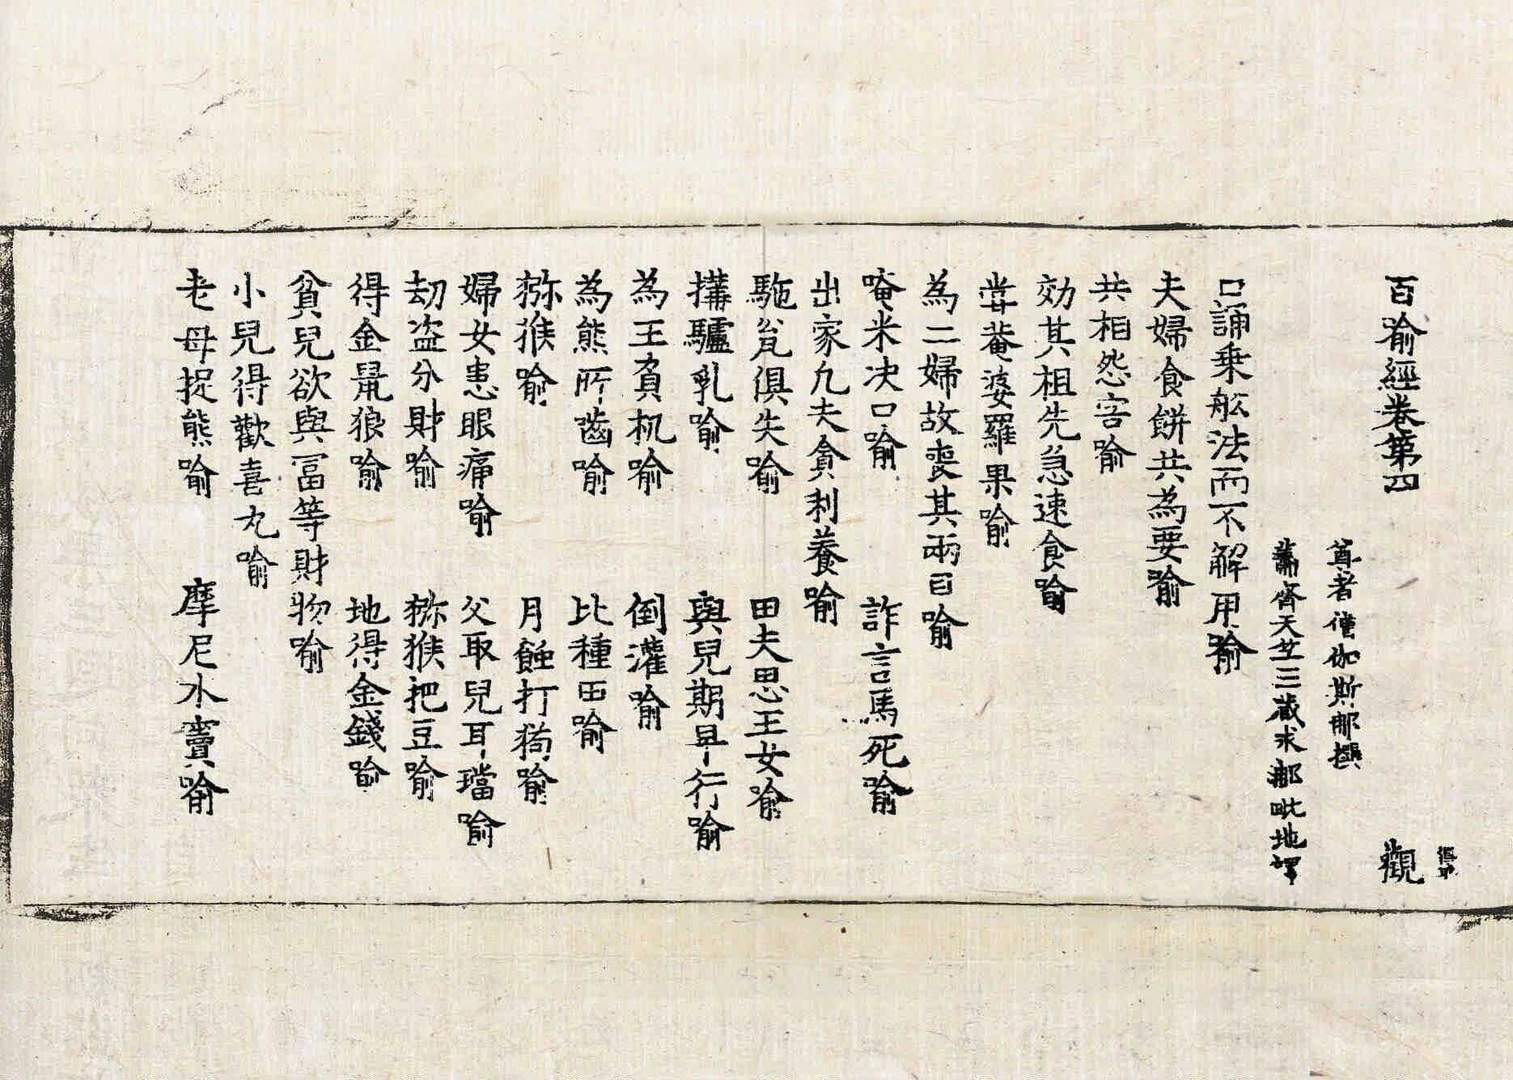 百喻經卷第四 觀
尊者僧伽斯那撰
蕭齊天竺三藏求那毗地譯
口誦乘舩法而不解用喻
夫婦食餅共為要喻
共相怨害喻
効其祖先急速食喻
甞菴婆羅果喻
為二婦故喪其兩目喻
唵米决口喻 詐言馬死喻
出家凢夫貪利養喻
駞瓮俱失喻 田夫思王女喻
搆驢乳喻 與兒期早行喻
為王負机喻 倒灌喻
為熊所齧喻 比種田喻
猕猴喻 月蝕打狗喻
婦女患眼痛喻 父取兒耳璫喻
劫盗分財喻 猕猴把豆喻
得金鼠狼喻 地得金錢喻
貧兒欲與冨等財物喻
小兒得歡喜丸喻
老母捉熊喻 摩尼水竇喻